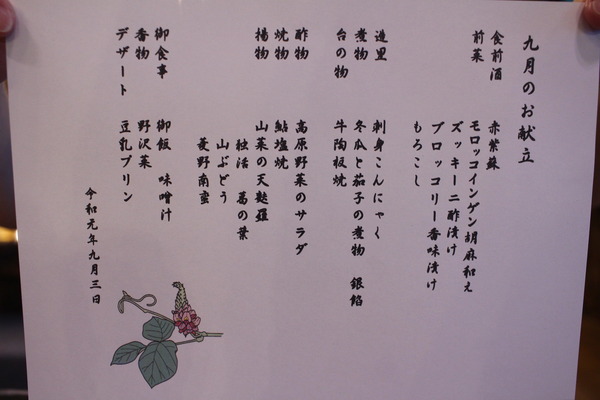 九月のお献立
食前酒 赤紫蘇
前菜 モロッコインゲン胡麻和え
ズッキーニ酢漬け
ブロッコリー香味漬け
もろこし
造里 刺身こんにゃく
煮物 冬瓜と茄子の煮物 銀餡
台の物 牛陶板焼
酢物 高原野菜のサラダ
焼物 鮎塩焼
揚物 山菜の天麩羅
独活 葛の葉
山ぶどう
菱野南蛮
御食事 御飯 味噌汁
香物 野沢菜
デザート 豆乳プリン
令和元年九月三日